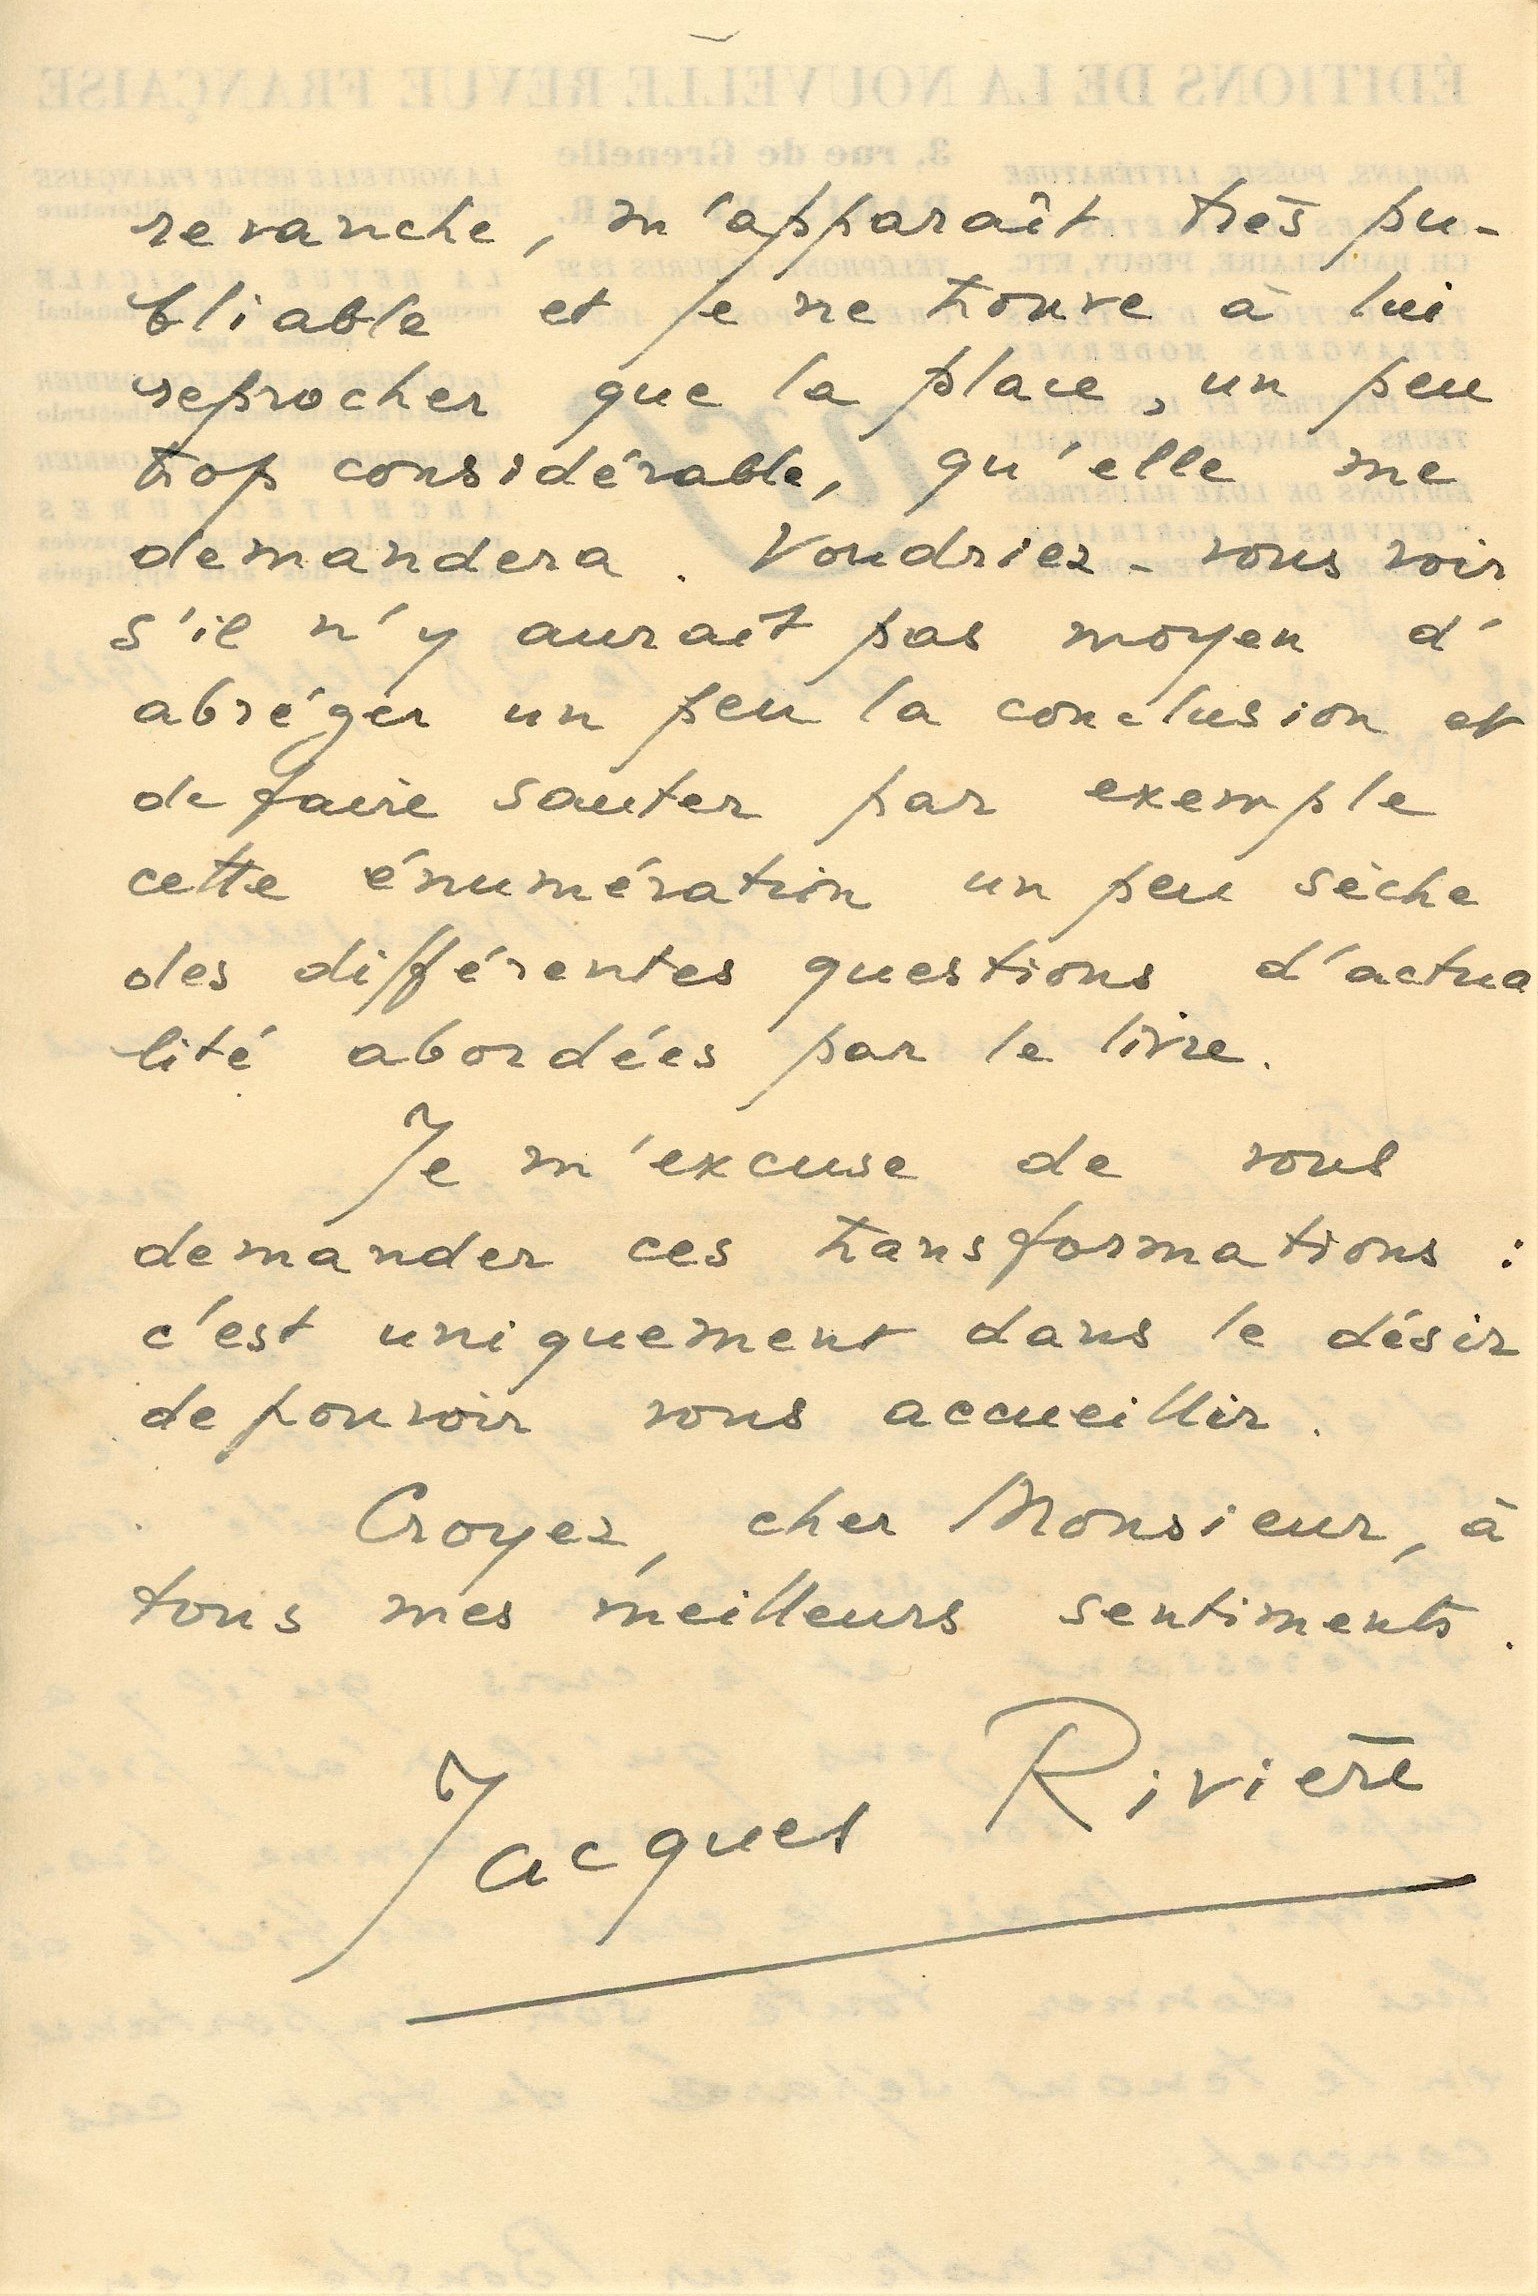 revanche, m'apparaît très pu-
bliable et je ne trouve à lui
reprocher que la place, un peu
trop considérable, qu'elle me
demandera. Voudriez-vous voir
s'il n'y aurait pas moyen d'
abréger un peu la conclusion et
de faire sauter par exemple
cette énumération un peu sèche
des différentes questions d'actua
lité abordées par le livre.
Je m'excuse de vous
demander ces transformations :
c'est uniquement dans le désir
de pouvoir vous accueillir.
Croyez, cher Monsieur, à
tous mes meilleurs sentiments.
Jacques Rivière